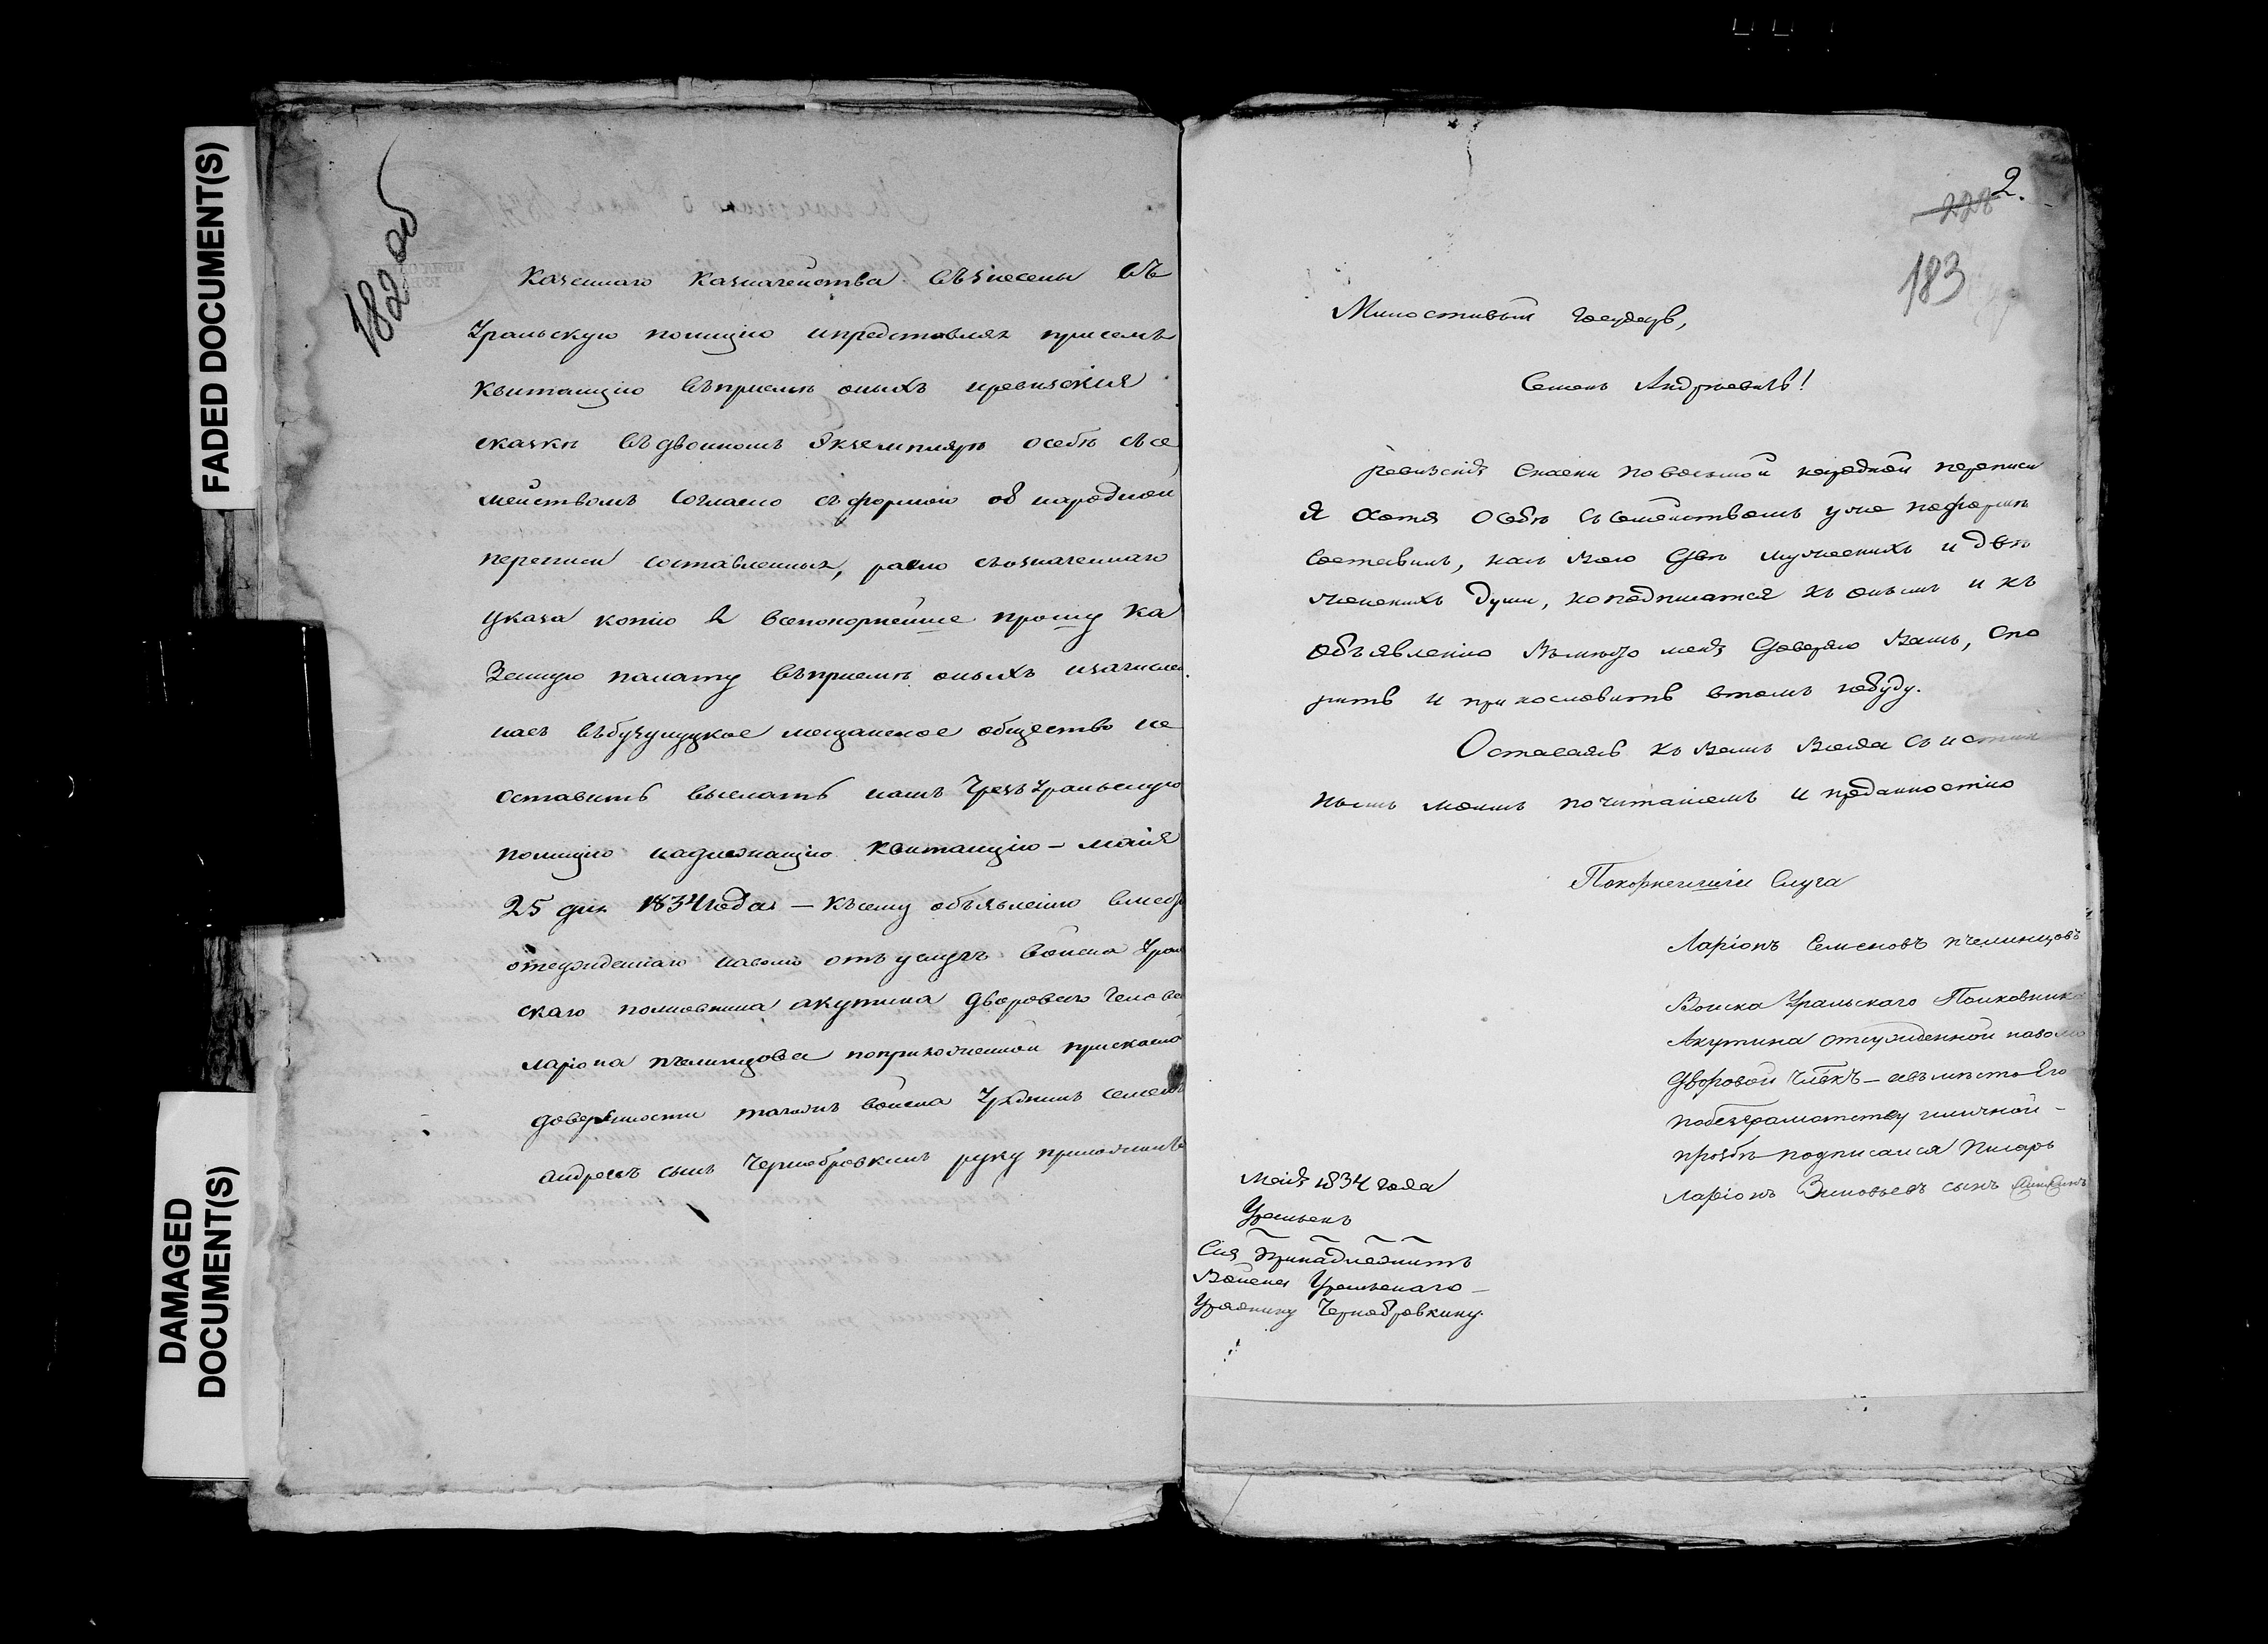 FADED DOCUMENT(S)
DAMAGED
DOCUMENT(S)
182 об
Казеннаго Казначейства взнесены въ
Уральскую полицию ипредставляя присемъ
Квитанцию въприемѣ оныхъ иревизския
сказки въдвоиномъ Экземплярѣ особѣ съсе
меиствомъ Согласно съформою об народнои
переписи составленныя, равно съозначеннаго
указа копию всепокорнейше прошу Ка
Зенную палату въприемѣ оныхъ изачислен
насъ въбузулуцкое мещанское общество не
оставить выслать намъ Чрезъ Уральскую
полицию надлежащую Квитанцию – маия
25 дня 1834 года – Ксему объявлению вместо
отсужденнаго наволю отъ услугъ Воиска Урал
скаго полковника акутина двороваго Челове
лариона пчелинцова поприложеннои присказке
доверенности тагожъ воиска Урядникъ семенъ
андреевъ сынъ Чернобровкинъ руку приложилъ
2.
228
183
Милостивый Государь,
Семенъ Андреевичь!
Ревизския Сказки по восьмой народной переписи
я хотя Особѣ съ Семействомъ уже поформѣ
Составилъ, на двѣ мужескихъ и двѣ
женскихъ души, но подписатся къ онымъ и къ
объявлению Вместо меня Доверяю Вамъ, Спо
рить и прикословить втомъ небуду.
Остаюсь къ Вамъ Всегда съ истин
нымъ моимъ почитаниемъ и преданностию
Покорнеишии Слуга
Ларионъ Семеновъ пчелинцовъ
Воиска Уральскаго Полковника
Акутина отсужденной наволю
Дворовой Члвкъ – авместо Его
побезграмотству иличной –
прозбѣ подписался Писарь
Ларионъ Зиновьевъ сынъ
Маия 1834 года
Уральскъ
Сия принадлежитъ
Войска Уральскаго –
Уряднику Чернобровкину.